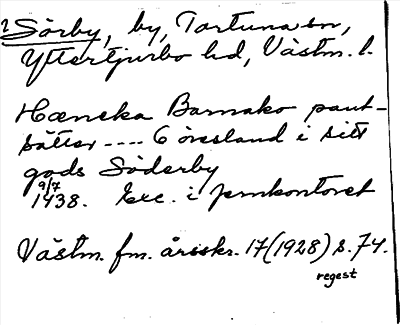 ? Sörby, by, Tortuna sn,
Yttertjurbo hd, Västm. l.
Hæneka Barnako pant-
sätter ---- 6 öresland i sitt
gods Söderby
9/7
1438. Exc. i pmkontoret
Västm. fm. årsskr. 17 (1928) s. 74.
regest